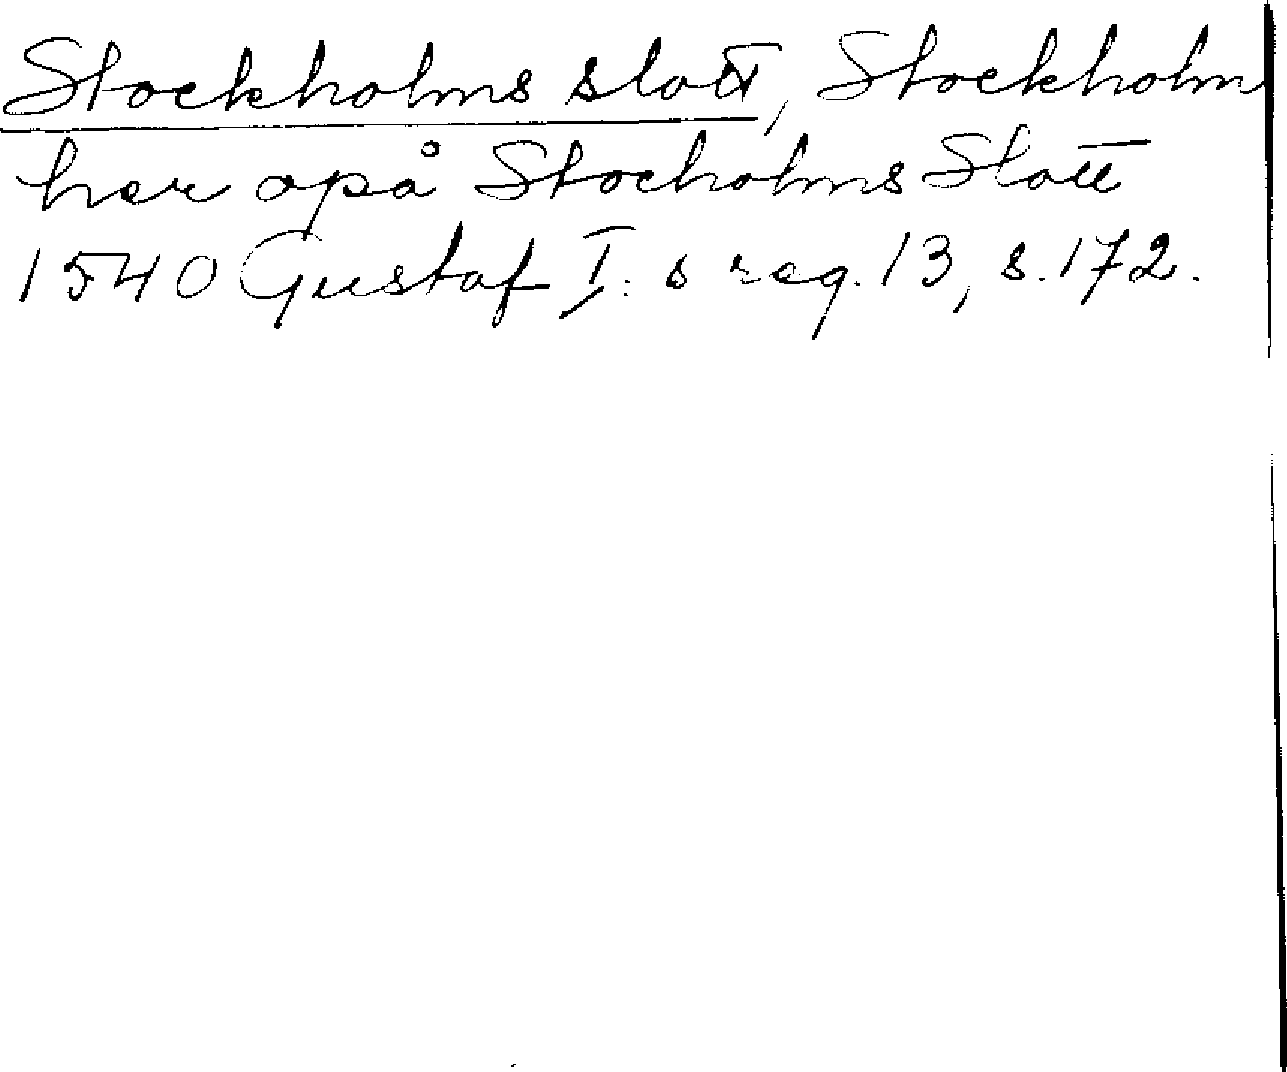 Stockholms slott, Stockholm
her opå Stocholms Slott
1540 Gustaf I:s reg. 13, s. 172.